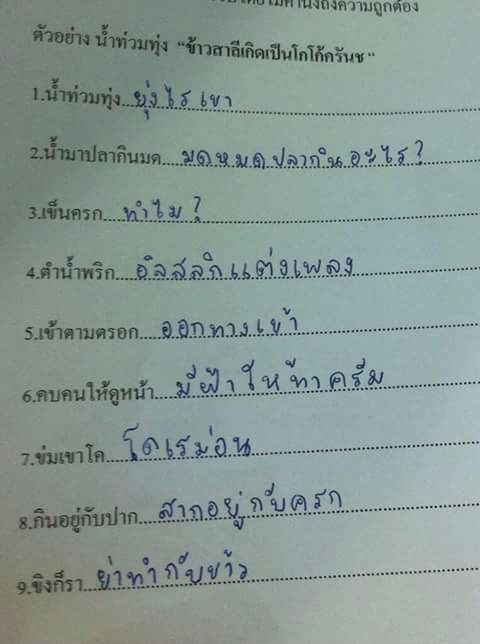 โดยไม่คำนึงถึงความถูกต้อง
ตัวอย่าง น้ำท่วมทุ่ง "ข้าวสาลีเกิดเป็นโกโก้ครันช"
1.น้ำท่วมทุ่ง...ยุ่งไรเขา
2.น้ำมาปลากินมด...มดหมดปลากินอะไร?
3.เข็นครก...ทำไม?
4.ตำน้ำพริก...อิสสลิกแต่งเพลง
5.เข้าตามตรอก...ออกทางเข้า
6.คบคนให้ดูหน้า...มีฝ้าให้ทาครีม
7.ข่มเขาโค...โดเรม่อน
8.กินอยู่กับปาก...สากอยู่กับครก
9.ขิงก็รา...ย่าทำกับข้าว